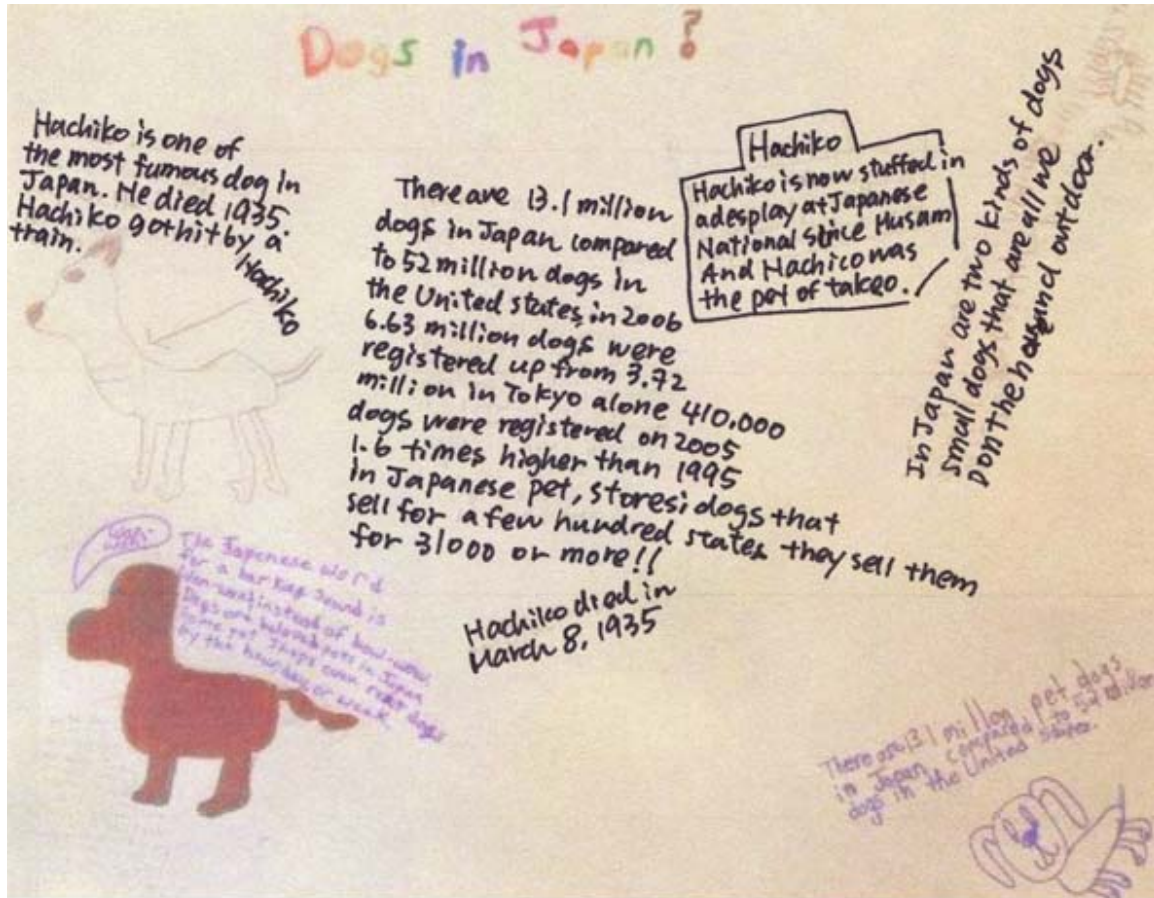 Dogs in Japan?
Hachiko is one of
the most fumous dog in
Japan. He died 1935.
Hachiko got hit by a
train.
Hachiko
There are 13.1 million
dogs in Japan compared
to 52 million dogs in
the United states, in 2006
6.63 million dogs were
registered up from 3.72
million in Tokyo alone 410,000
dogs were registered on 2005
1.6 times higher than 1995
in Japanese pet, stores; dogs that
sell for a few hundred states they sell them
for 31000 or more!!
Hachiko died in
March 8, 1935
Hachiko
Hachiko is now stuffed in
a desplay at Japanese
National stince Musam
And Hachico was
the pet of takeo.
In Japan are two kinds of dogs
small dogs that are all me
Don the and outdoor.
The Japanese word
for a barking sound is
wan-wan instead of bow-wow.
Dogs are beloved pets in Japan
some pet shops even rent dogs
by the hour day or week.
There are 13.1 millon pet dogs
in Japan compared to 52 millon
dogs in the United States.